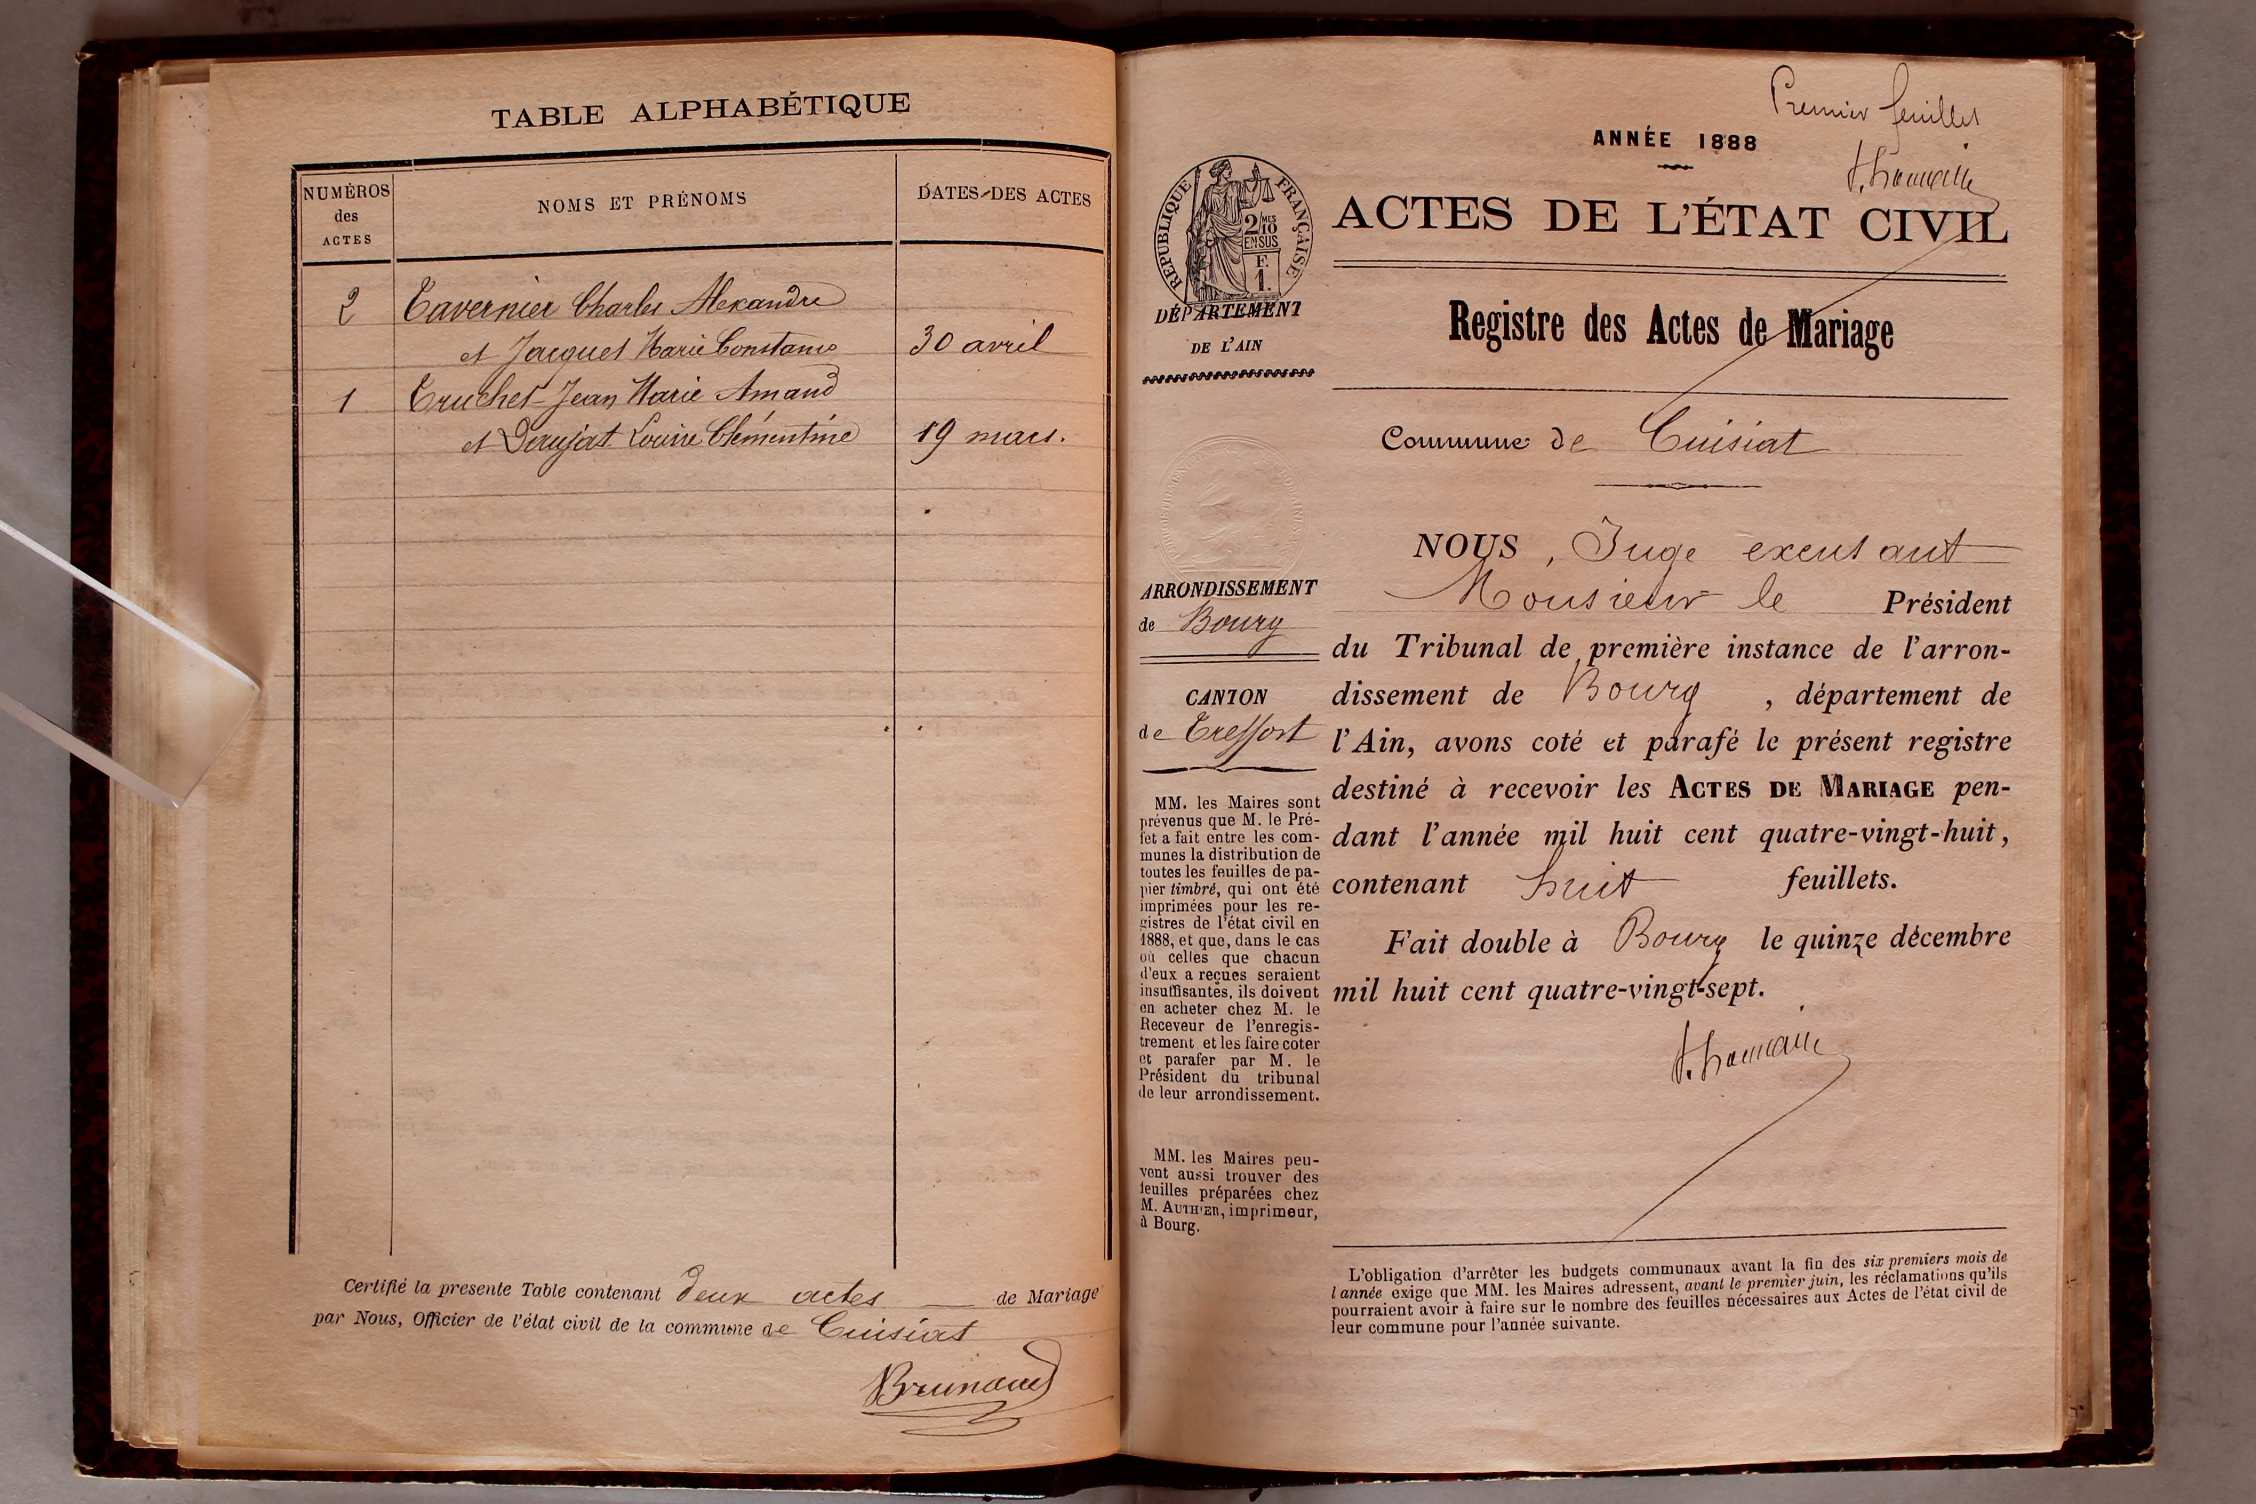 TABLE ALPHABÉTIQUE
NUMÉROS
des
ACTES
NOMS ET PRÉNOMS
DATES DES ACTES
2 Tavernier Charles Alexandre
et Jacquet Marie Constance 30 avril
1 Truchet Jean Marie Amand
et Doujat Louise Clémentine 19 mars.
Certifié la presente Table contenant deux actes de Mariage
par Nous, Officier de l'état civil de la commune de Cuisiat
Premier feuillet
ANNÉE 1888
ACTES DE L'ÉTAT CIVIL
Registre des Actes de Mariage
Commune de Cuisiat
RÉPUBLIQUE FRANÇAISE
2/10 MES
EN SUS
F.
1.
DÉPARTEMENT
DE L'AIN
ARRONDISSEMENT
de Bourg
CANTON
de Treffort
MM. les Maires sont
prévenus que M. le Pré-
fet a fait entre les com-
munes la distribution de
toutes les feuilles de pa-
pier timbré, qui ont été
imprimées pour les re-
gistres de l'état civil en
1888, et que, dans le cas
où celles que chacun
d'eux a reçues seraient
insuffisantes, ils doivent
en acheter chez M. le
Receveur de l'enregis-
trement et les faire coter
et parafer par M. le
Président du tribunal
de leur arrondissement.
MM. les Maires peu-
vent aussi trouver des
feuilles préparées chez
M. AUTHIER, imprimeur,
à Bourg.
NOUS, Juge excusant
Monsieur le Président
du Tribunal de première instance de l'arron-
dissement de Bourg, département de
l'Ain, avons coté et parafé le présent registre
destiné à recevoir les ACTES DE MARIAGE pen-
dant l'année mil huit cent quatre-vingt-huit,
contenant huit feuillets.
Fait double à Bourg le quinze décembre
mil huit cent quatre-vingt-sept.
L'obligation d'arrêter les budgets communaux avant la fin des six premiers mois de
l'année exige que MM. les Maires adressent, avant le premier juin, les réclamations qu'ils
pourraient avoir à faire sur le nombre des feuilles nécessaires aux Actes de l'état civil de
leur commune pour l'année suivante.